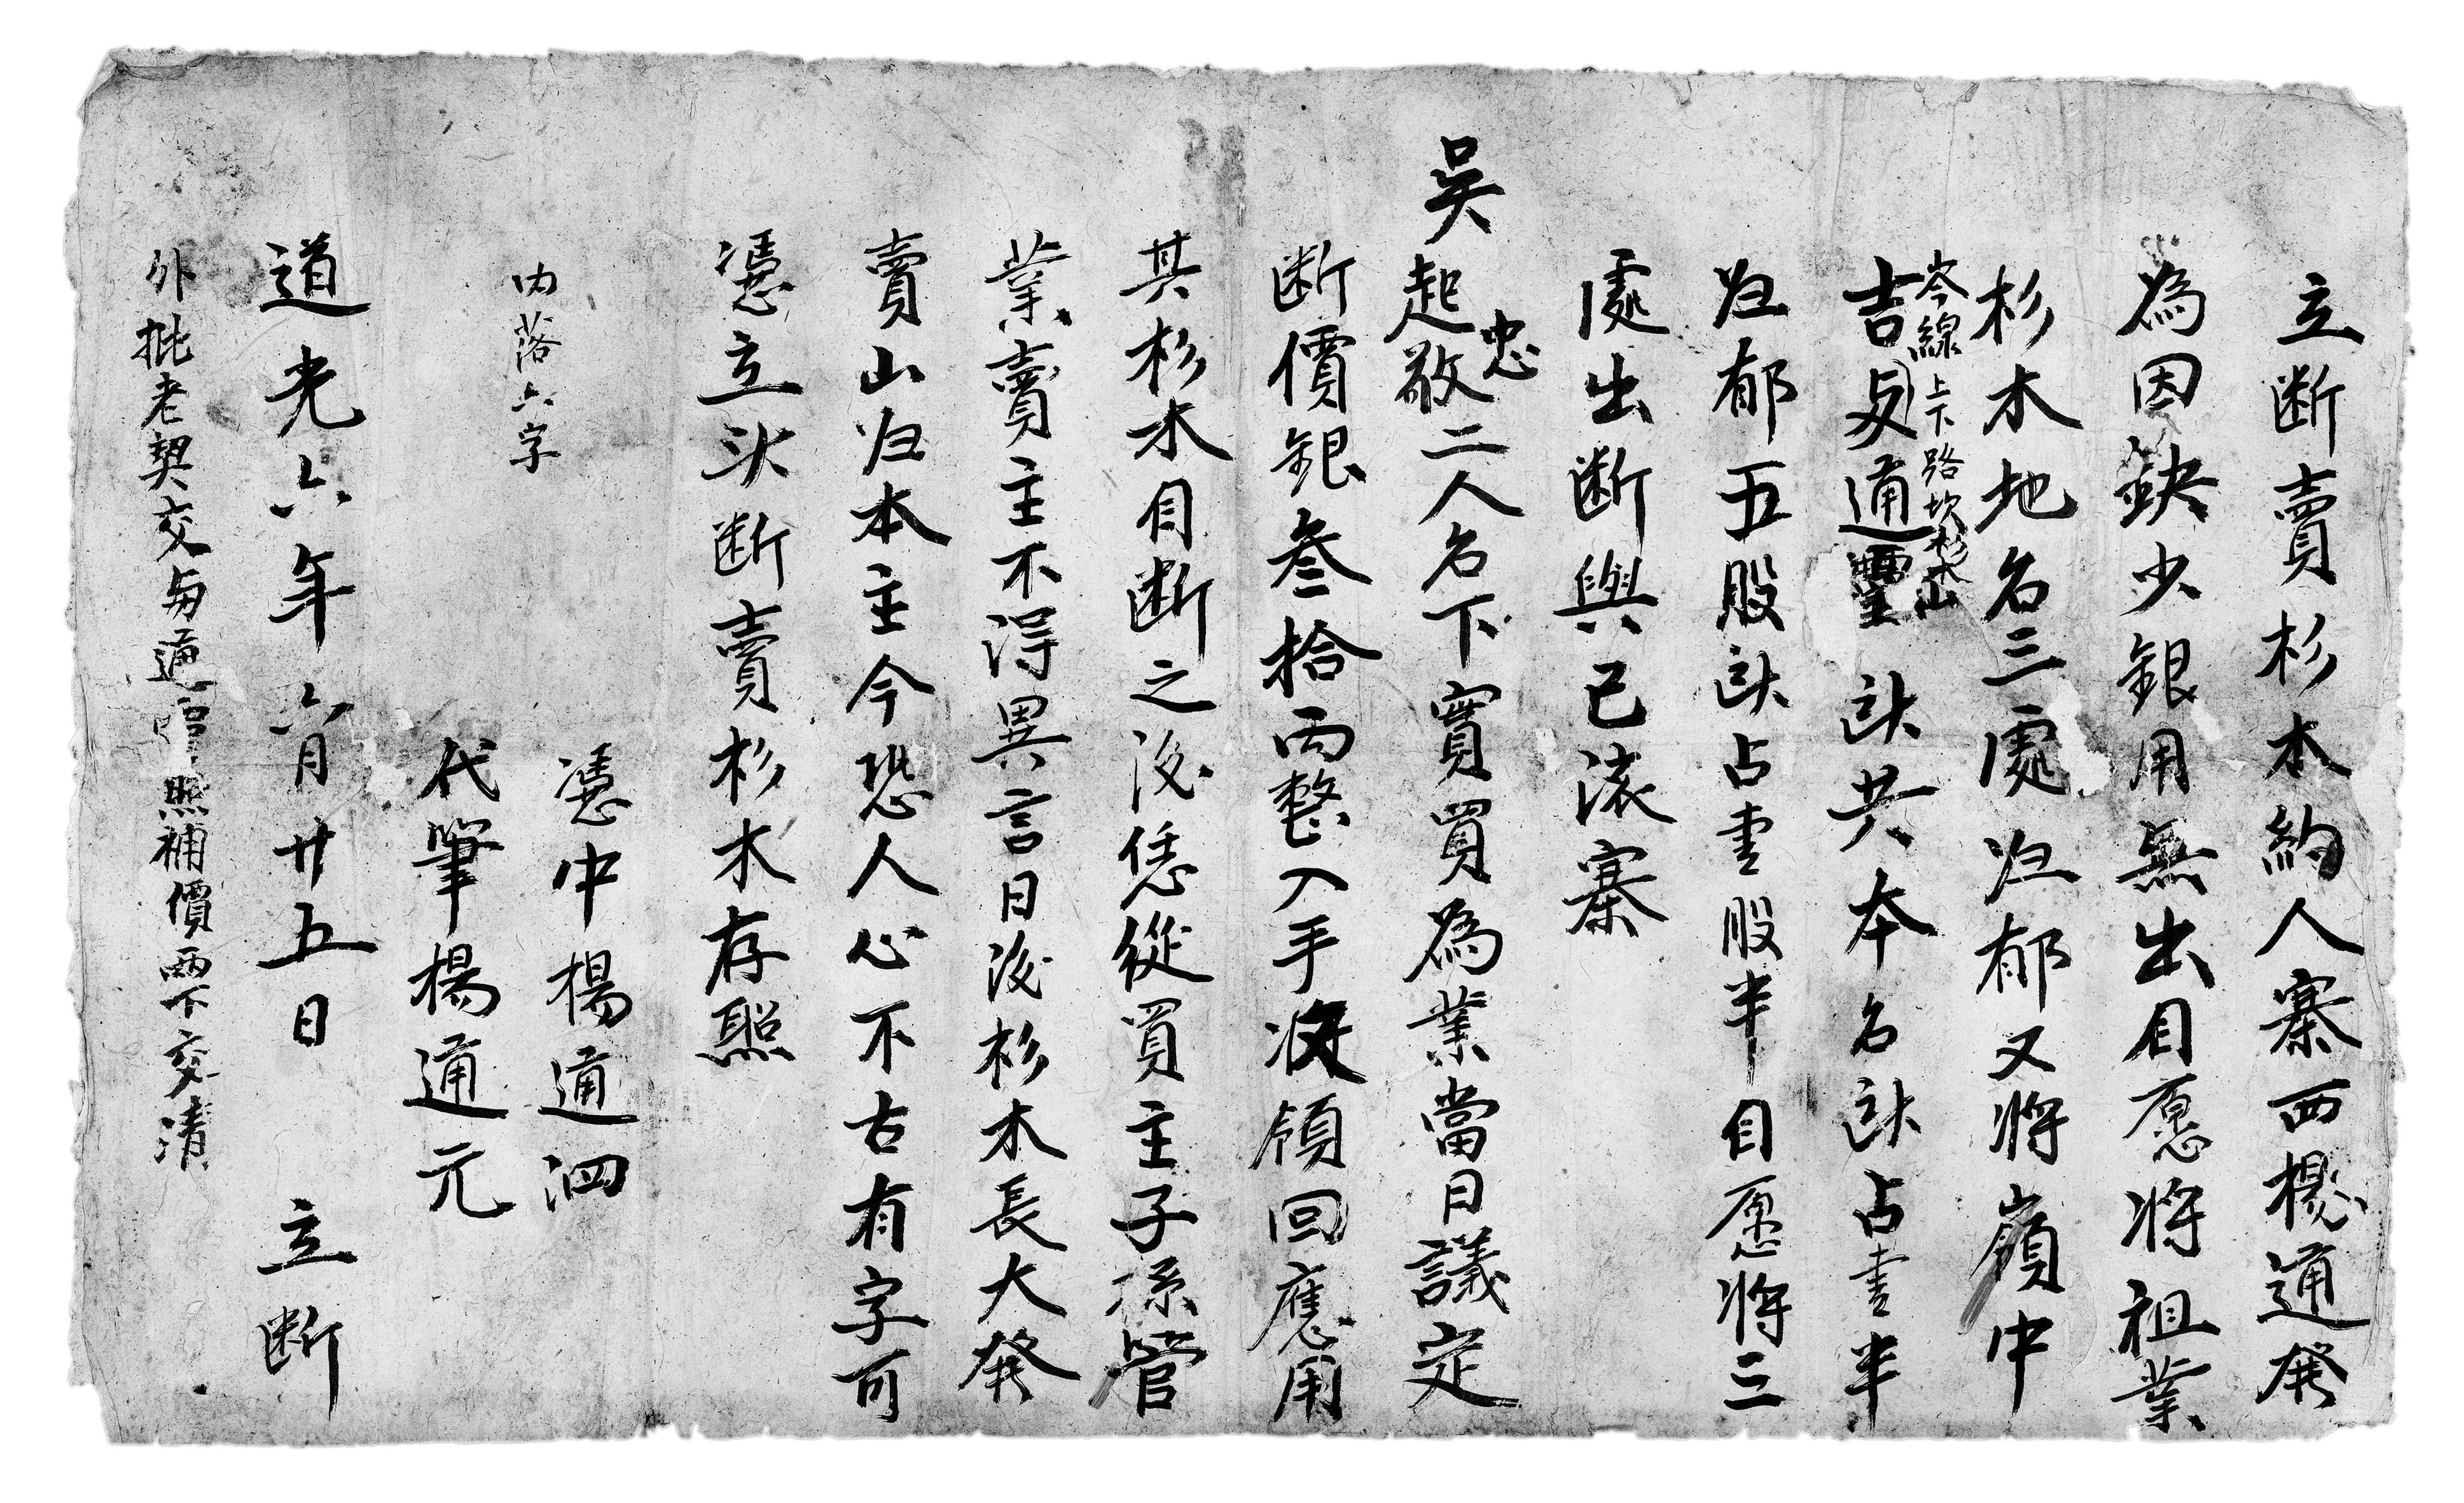 立断賣杉木約人寨西楊通發
為因缺少銀用無出自愿將祖業
杉木地名三處归郁又將嶺中
岑線上下路坎杉山
吉与通聖䟕共本名䟕占壹半
归郁五股䟕占壹股半自愿將三
處出断與己滚寨
吳起敬忠二人名下實買為業當日議定
断價銀叄拾両整入手收領回應用
其杉木自断之後恁從買主子孫管
業賣主不得異言日後杉木長大發
賣山归本主今恐人心不古有字可
凴立此断賣杉木存照
内落六字
凴中楊通泗
代筆楊通元
道光六年六月廿五日 立断
外批老契交与通照補價両下交清